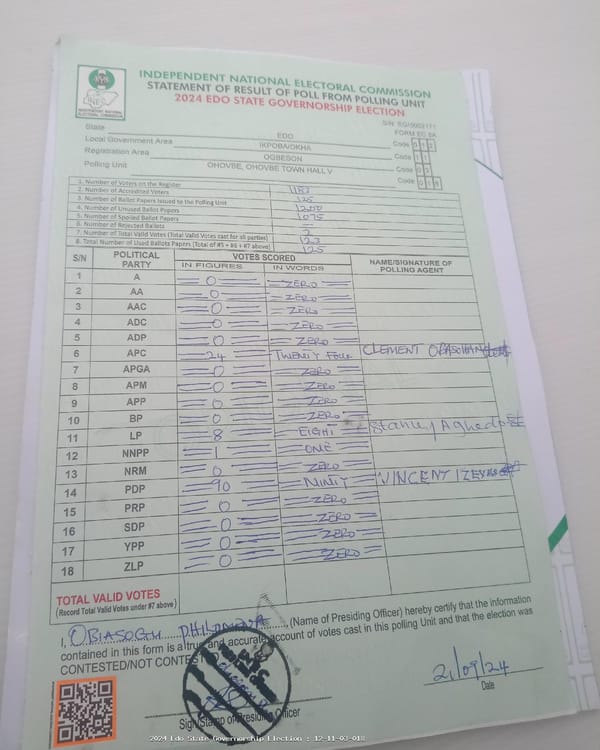 INDEPENDENT NATIONAL ELECTORAL COMMISSION
STATEMENT OF RESULT OF POLL FROM POLLING UNIT
2024 EDO STATE GOVERNORSHIP ELECTION
FORM EC 8A
State EDO Code 0 1 2
Local Government Area IKPOBA/OKHA Code 1 1
Registration Area OGBESON Code 0 3
Polling Unit OHOVBE, OHOVBE TOWN HALL V Code 0 1 8
1. Number of Voters on the Register 1183
2. Number of Accredited Voters 125
3. Number of Ballot Papers Issued to the Polling Unit 1200
4. Number of Unused Ballot Papers 1075
5. Number of Spoiled Ballot Papers
6. Number of Rejected Ballots 2
7. Number of Total Valid Votes (Total Valid Votes cast for all parties) 123
8. Total Number of Used Ballots Papers (Total of #5 + #6 + #7 above) 125
S/N POLITICAL PARTY VOTES SCORED NAME/SIGNATURE OF POLLING AGENT
IN FIGURES IN WORDS
1 A 0 ZERO
2 AA 0 ZERO
3 AAC 0 ZERO
4 ADC 0 ZERO
5 ADP 0 ZERO
6 APC 24 TWENTY FOUR CLEMENT
7 APGA 0 ZERO
8 APM 0 ZERO
9 APP 0 ZERO
10 BP 0 ZERO
11 LP 8 EIGHT Stanley
12 NNPP 1 ONE
13 NRM 0 ZERO
14 PDP 90 NINTY VINCENT
15 PRP 0 ZERO
16 SDP 0 ZERO
17 YPP 0 ZERO
18 ZLP 0 ZERO
TOTAL VALID VOTES
(Record Total Valid Votes under #7 above)
I, OBIASOGU (Name of Presiding Officer) hereby certify that the information
contained in this form is a true and accurate account of votes cast in this polling Unit and that the election was
CONTESTED/NOT CONTESTED
21/09/24
Sign/Stamp of Presiding Officer
Date
2024 Edo State Governorship Election : 12-11-03-018